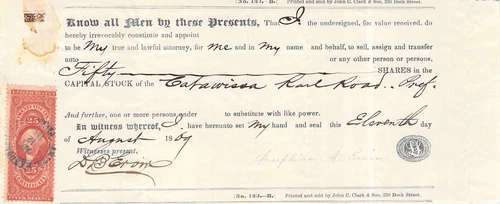 (No. 123.-B.) Printed and sold by John C. Clark & Son, 230 Dock Street.
Know all Men by these Presents, That I. the undersigned, for value received, do
hereby irrevocably constitute and appoint
to be My true and lawful attorney, for me and in My name and behalf, to sell, assign and transfer
unto or any other person or persons,
Fifty SHARES in the
CAPITAL STOCK of the Catawissa Rail Road. Pref.
And further, one or more persons under to substitute with like power.
In witness whereof, I. have hereunto set My hand and seal this Eleventh day
of August 1869
Witnesses present,
25 25
(No. 123.-B.) Printed and sold by John C. Clark & Son, 230 Dock Street.